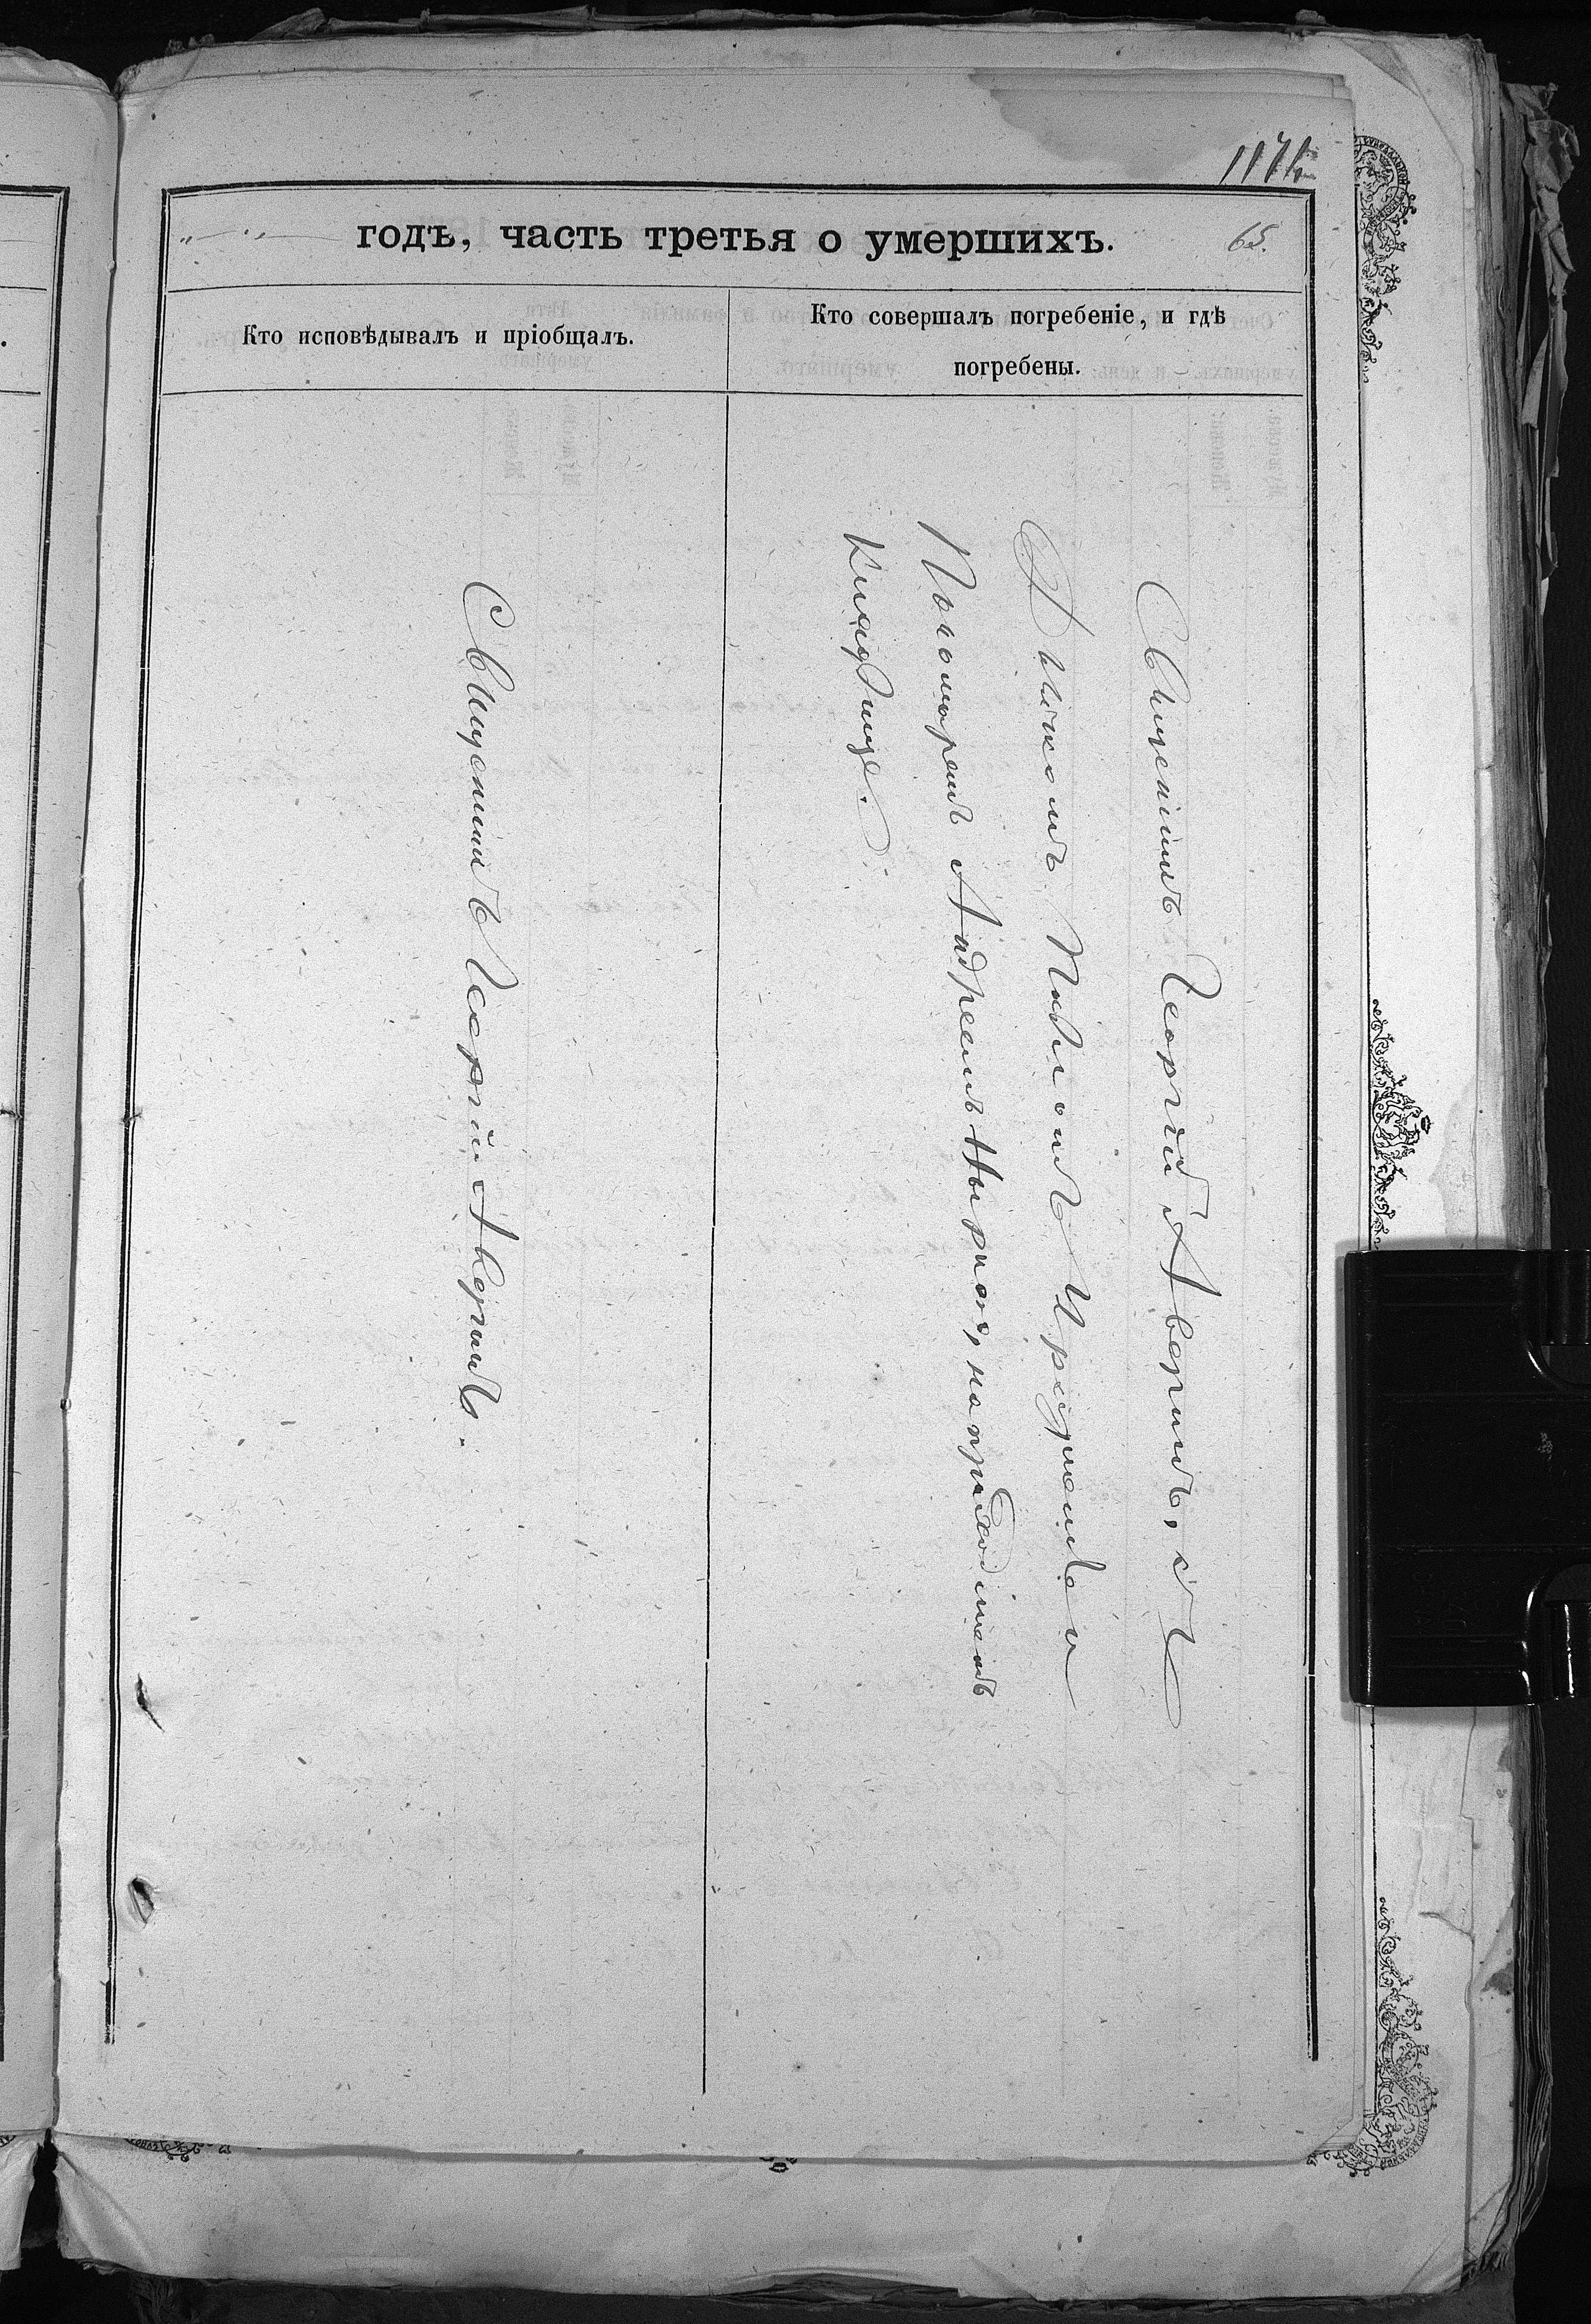 65.
годъ, часть третья о умершихъ.
Кто исповѣдывалъ и пріобщалъ.
Кто совершалъ погребеніе, и гдѣ
погребены.
Священникъ Георгій Аверинъ.
Священникъ Георгій Аверинъ, съ
и
Пономаремъ Андреемъ на приходскомъ
кладбище.